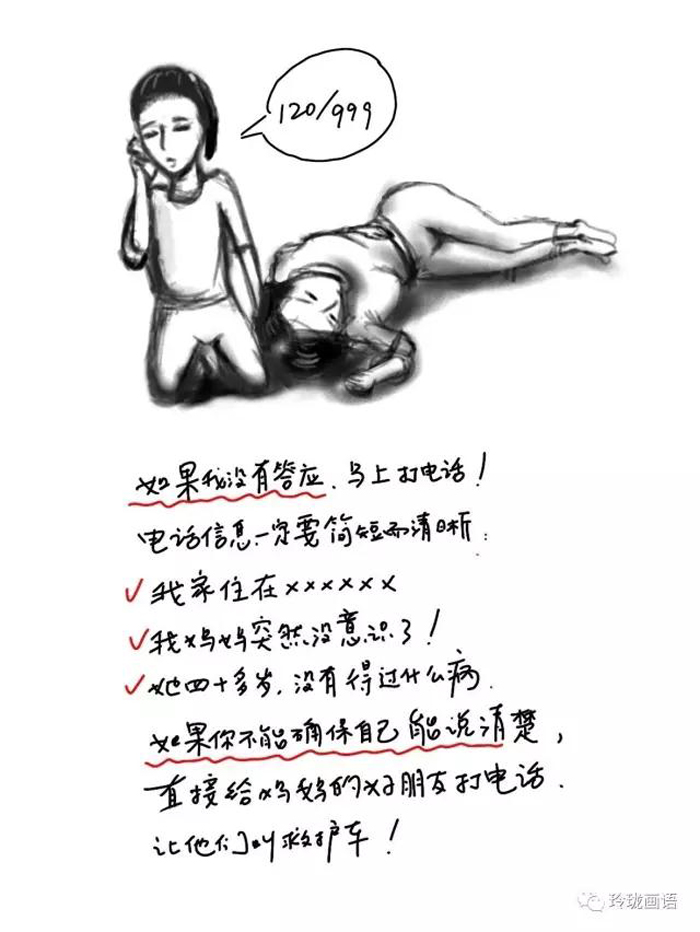 120/999
如果我没有答应、马上打电话！
电话信息一定要简短而清晰：
✓我家住在××××××
✓我妈妈突然没意识了！
✓她四十多岁，没有得过什么病．
如果你不能确保自己能说清楚，
直接给妈妈的好朋友打电话．
让他们叫救护车！
玲珑画语